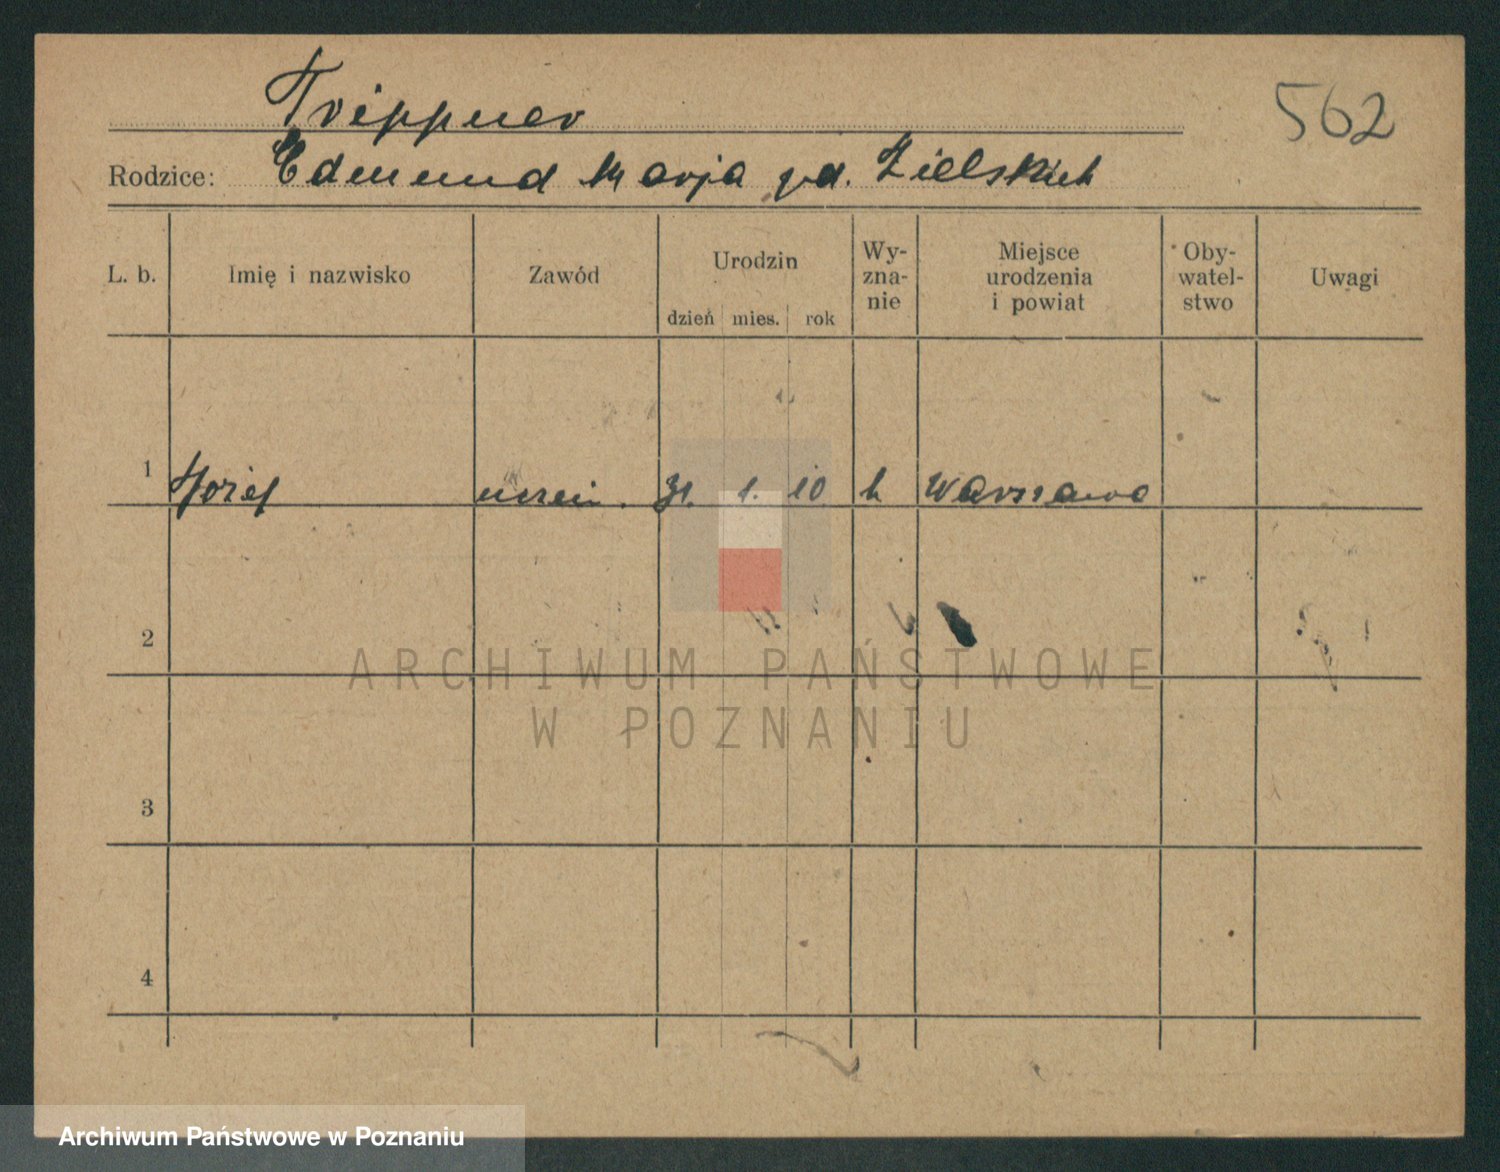 Trippner
562
Rodzice: Edmund Marja zd. Zielskich
L. b. Imię i nazwisko Zawód Urodzin dzień mies. rok Wy-zna-nie Miejsce urodzenia i powiat Oby-watel-stwo Uwagi
1 Józef uczeń. 31. 1. 10 k Warszawa
2
ARCHIWUM PAŃSTWOWE
W POZNANIU
3
4
Archiwum Państwowe w Poznaniu